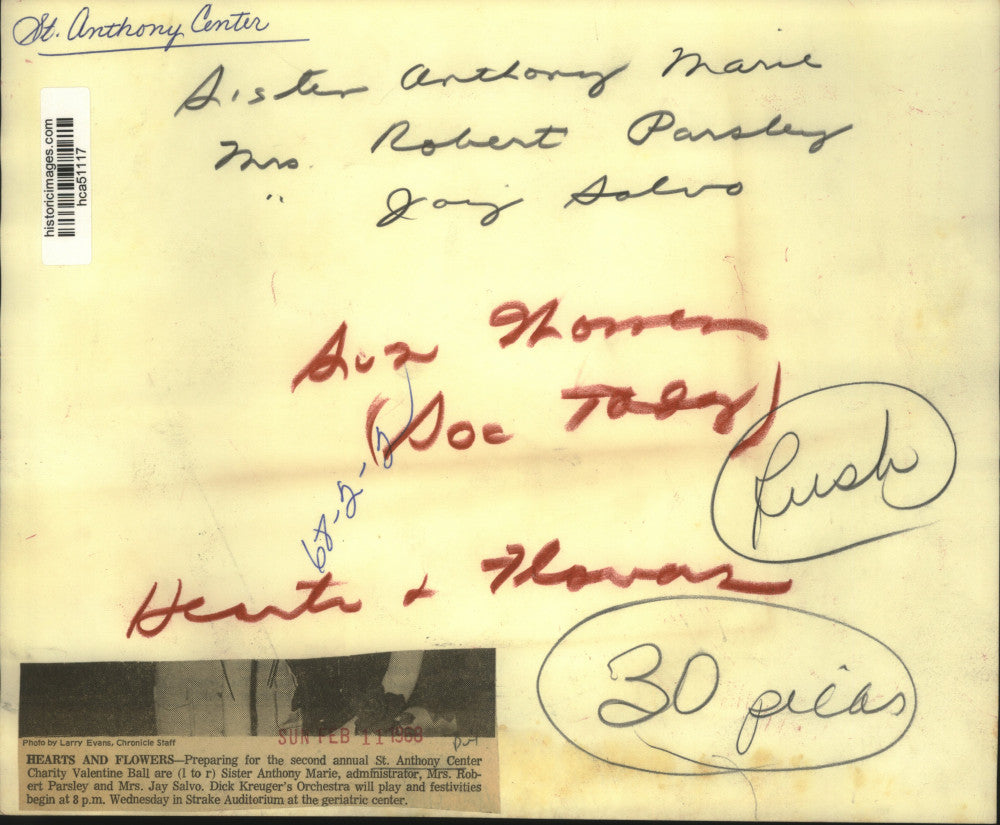 St. Anthony Center
Sister Anthony Marie
Mrs. Robert Parsley
" Jay Salvo
historicimages.com
hca51117
Sun Women
(Soc Today)
Rush
68-2-2
Hearts & Flowers
30 picas
SUN FEB 11 1968
Photo by Larry Evans, Chronicle Staff
HEARTS AND FLOWERS—Preparing for the second annual St. Anthony Center
Charity Valentine Ball are (l to r) Sister Anthony Marie, administrator, Mrs. Rob-
ert Parsley and Mrs. Jay Salvo. Dick Kreuger's Orchestra will play and festivities
begin at 8 p.m. Wednesday in Strake Auditorium at the geriatric center.